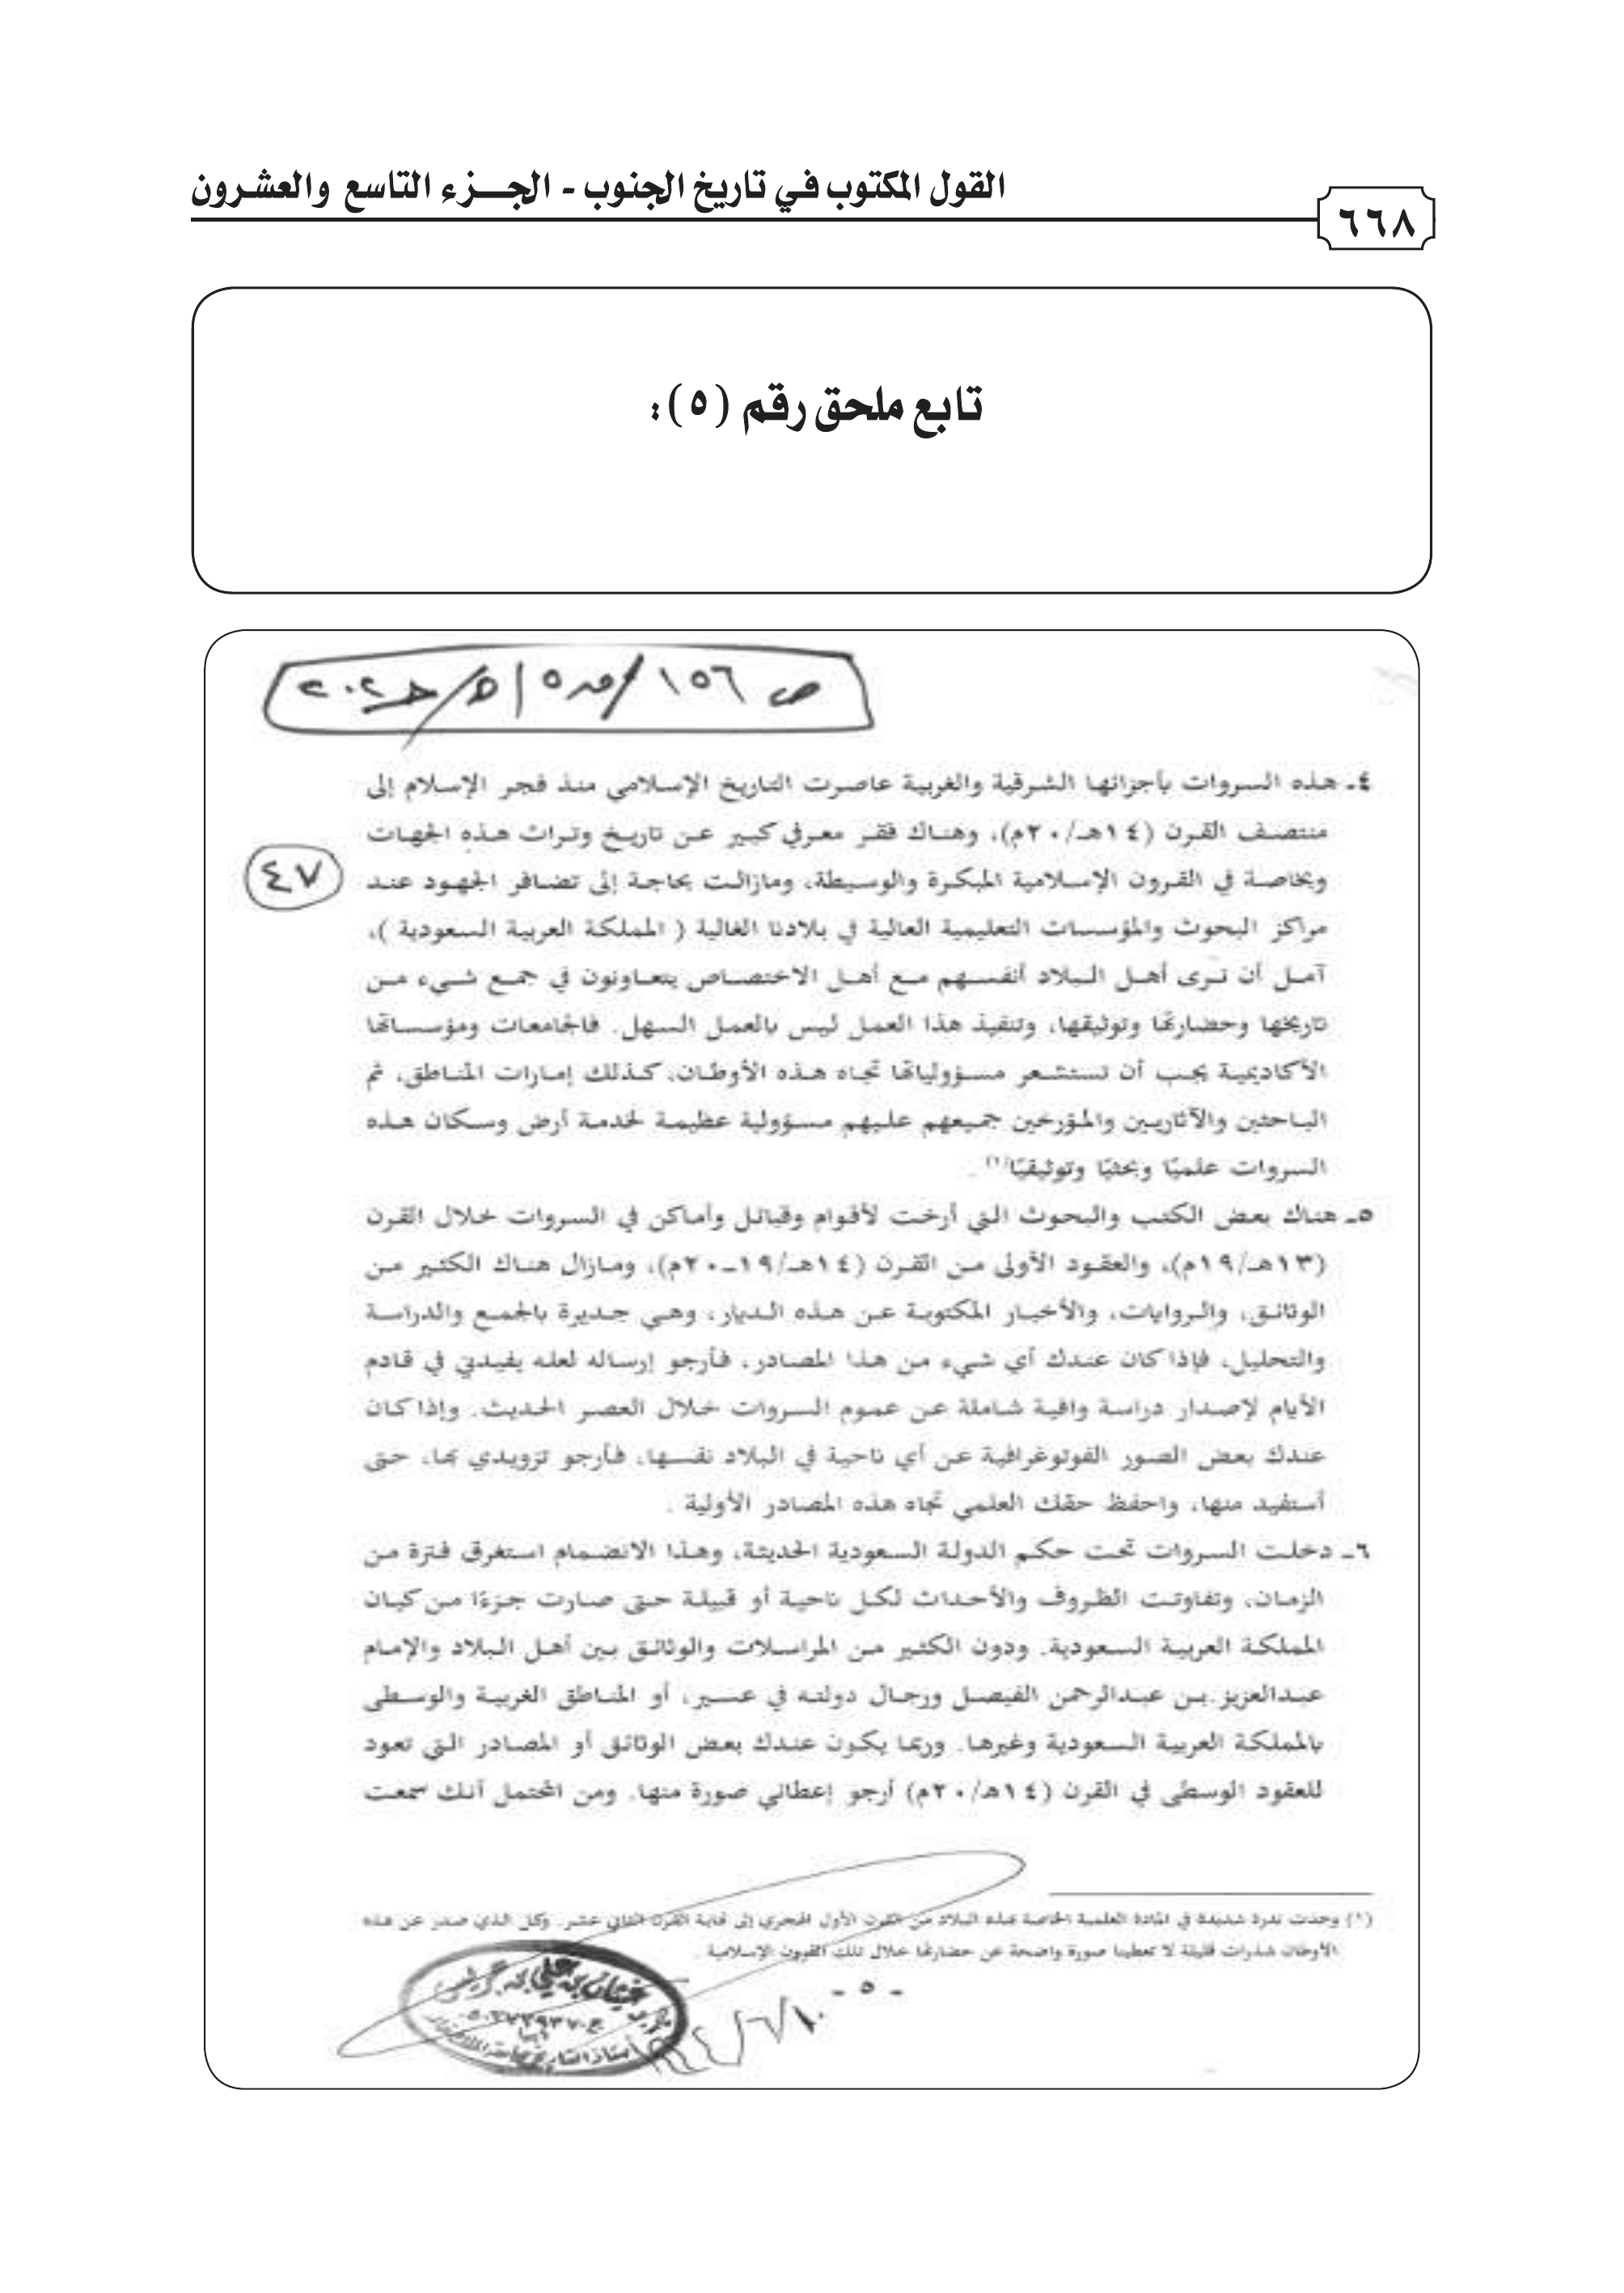 القول المكتوب في تاريخ الجنوب - الجـــزء التاسع والعشرون
٦٦٨
تابع ملحق رقم (٥):
ص ١٥٦
٤- هذه السروات بأجزائها الشرقية والغربية عاصرت التاريخ الإسلامي منذ فجر الإسلام إلى
منتصف القرن (١٤هـ/٢٠م)، وهناك فقر معرفي كبير عن تاريخ وتراث هذه الجهات
٤٧
وبخاصة في القرون الإسلامية المبكرة والوسيطة، ومازالت بحاجة إلى تضافر الجهود عند
مراكز البحوث والمؤسسات التعليمية العالية في بلادنا الغالية ( المملكة العربية السعودية )،
آمل أن نرى أهل البلاد أنفسهم مع أهل الاختصاص يتعاونون في جمع شيء من
تاريخها وحضارتها وتوثيقها، وتنفيذ هذا العمل ليس بالعمل السهل. فالجامعات ومؤسساتها
الأكاديمية يجب أن تستشعر مسؤولياتها تجاه هذه الأوطان، كذلك إمارات المناطق، ثم
الباحثين والآثاريين والمؤرخين جميعهم عليهم مسؤولية عظيمة لخدمة أرض وسكان هذه
السروات علميًا وبحثيًا وتوثيقيًا(١).
٥- هناك بعض الكتب والبحوث التي أرخت لأقوام وقبائل وأماكن في السروات خلال القرن
(١٣هـ/١٩م)، والعقود الأولى من القرن (١٤هـ/١٩-٢٠م)، ومازال هناك الكثير من
الوثائق، والروايات، والأخبار المكتوبة عن هذه الديار، وهي جديرة بالجمع والدراسة
والتحليل، فإذا كان عندك أي شيء من هذا المصادر، فأرجو إرساله لعله يفيدني في قادم
الأيام لإصدار دراسة وافية شاملة عن عموم السروات خلال العصر الحديث. وإذا كان
عندك بعض الصور الفوتوغرافية عن أي ناحية في البلاد نفسها، فأرجو تزويدي بها، حتى
أستفيد منها، واحفظ حقك العلمي تجاه هذه المصادر الأولية .
٦- دخلت السروات تحت حكم الدولة السعودية الحديثة، وهذا الانضمام استغرق فترة من
الزمان، وتفاوتت الظروف والأحداث لكل ناحية أو قبيلة حتى صارت جزءًا من كيان
المملكة العربية السعودية. ودون الكثير من المراسلات والوثائق بين أهل البلاد والإمام
عبدالعزيز بن عبدالرحمن الفيصل ورجال دولته في عسير، أو المناطق الغربية والوسطى
بالمملكة العربية السعودية وغيرها. وربما يكون عندك بعض الوثائق أو المصادر التي تعود
للعقود الوسطى في القرن (١٤هـ/٢٠م) أرجو إعطائي صورة منها. ومن المحتمل أنك سمعت
(١) وجدت ندرة شديدة في المادة العلمية الخاصة بهذه البلاد من القرن الأول الهجري إلى نهاية القرن الثاني عشر. وكل الذي صدر عن هذه
الأوطان شذرات قليلة لا تعطينا صورة واضحة عن حضارتها خلال تلك القرون الإسلامية .
- ٥ -